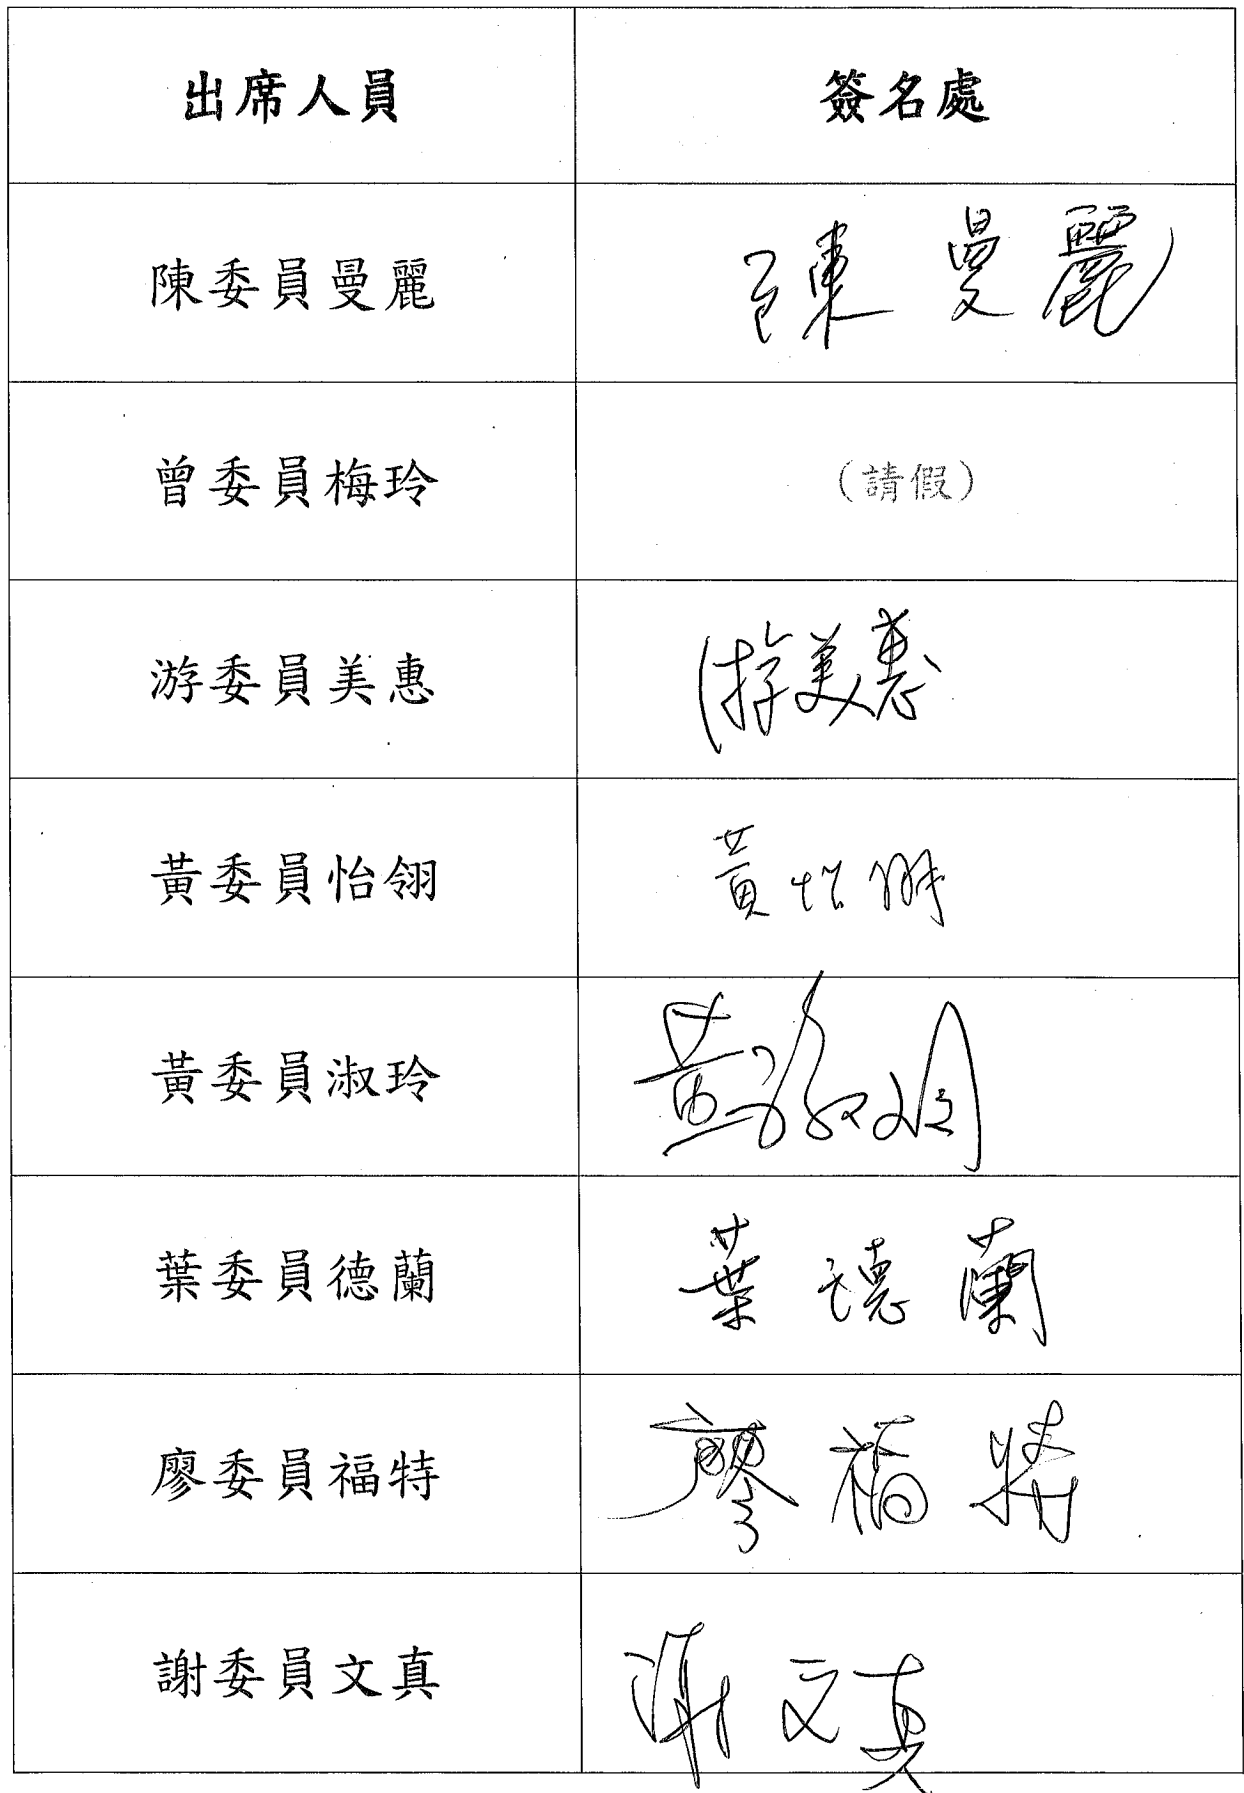 出席人員 簽名處
陳委員曼麗 陳曼麗
曾委員梅玲 （請假）
游委員美惠 游美惠
黃委員怡翎 黃怡翎
黃委員淑玲 黃淑玲
葉委員德蘭 葉德蘭
廖委員福特 廖福特
謝委員文真 謝文真